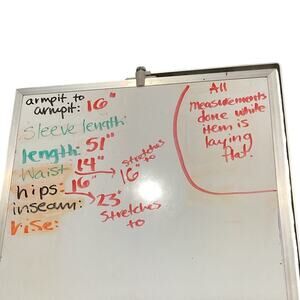 armpit to
armpit: 16"
Sleeve length:
length: 51"
Waist: 14" stretches to 16"
hips: 16" 23" stretches to
inseam:
rise:
All
measurements
done while
item is
laying
flat.